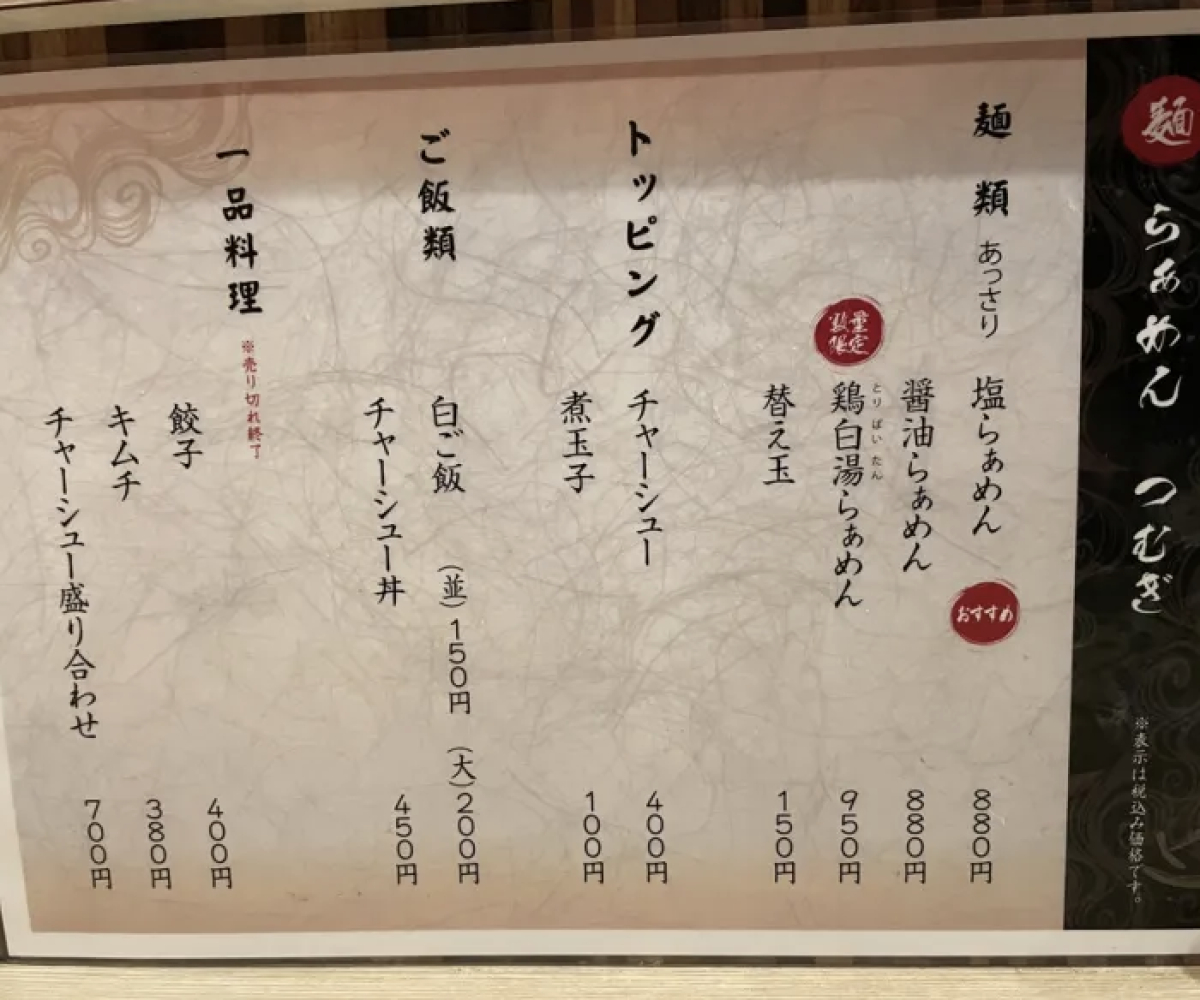 麺
らぁめん つむぎ
※表示は税込み価格です。
麺類 あっさり
塩らぁめん おすすめ 880円
醤油らぁめん 880円
数量限定
鶏白湯らぁめん 950円
とり ぱい たん
替え玉 150円
トッピング
チャーシュー 400円
煮玉子 100円
ご飯類
白ご飯 (並)150円 (大)200円
チャーシュー丼 450円
一品料理 ※売り切れ終了
餃子 400円
キムチ 380円
チャーシュー盛り合わせ 700円